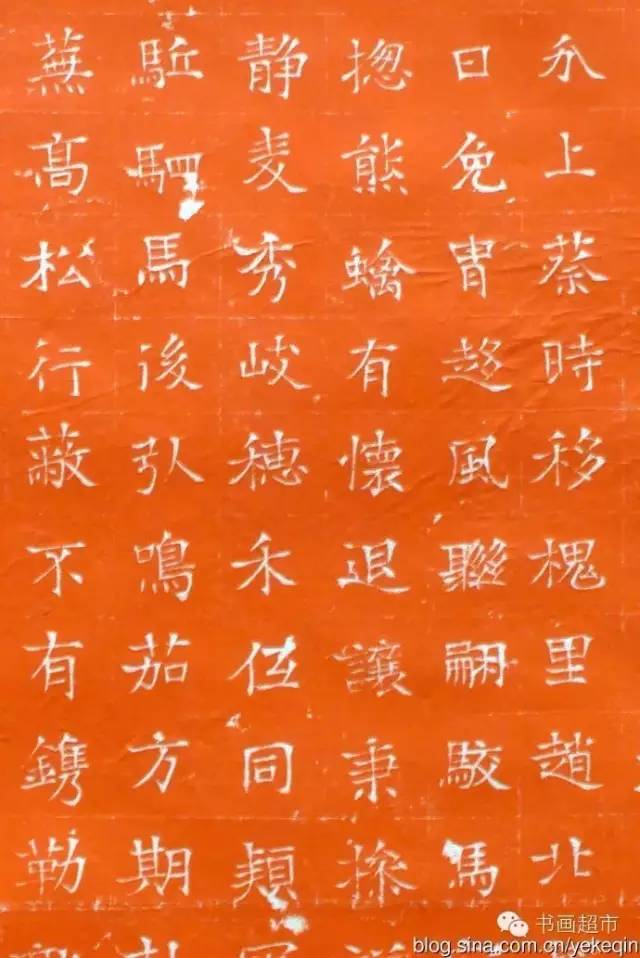 上蔡時移槐里趙北
曰免胄趍風聯翩駮馬
揔熊螭有懷退讓秉操
静麦秀岐穗禾伍同頪
駈駟馬後引鳴茄方期
蕪髙松行蔽不有鐫勒
书画超市
blog.sina.com.cn/yekeqin